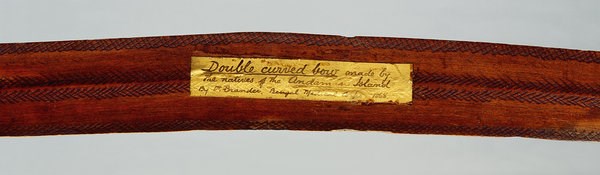 Double curved bow made by
the natives of the Andam Island
By Brander, Bengal